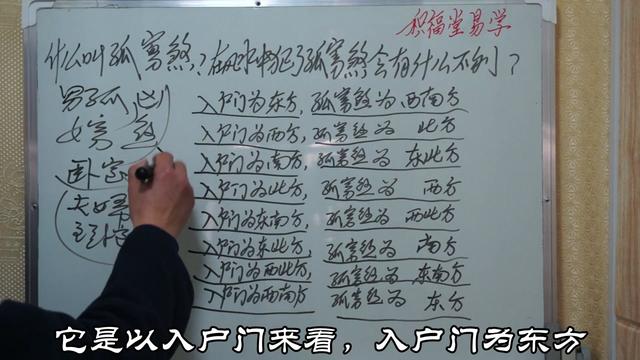 积福堂易学
什么叫孤寡煞?在风水中犯了孤寡煞会有什么不利?
男孤 凶
女寡 煞
卧室
夫妇
入户门为东方,孤寡煞为西南方
入户门为西方,孤寡煞为 北方
入户门为南方,孤寡煞为 东北方
入户门为北方,孤寡煞为 西方
入户门为东南方,孤寡煞为 西北方
入户门为东北方,孤寡煞为 南方
入户门为西北方,孤寡煞为 东南方
入户门为西南方 孤寡煞为 东方
它是以入户门来看,入户门为东方